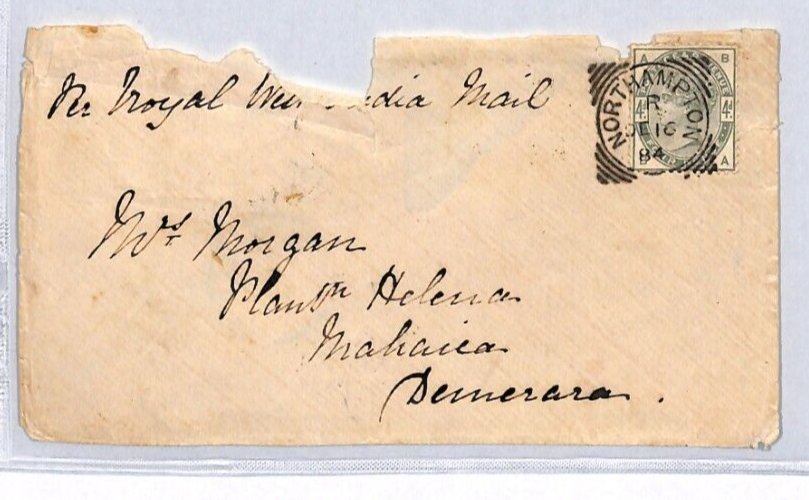 Per Royal West India Mail
NORTHAMPTON
R
DE 16
84
B
4d 4d
B A
Mrs Morgan
Plantn Helena
Mahaica
Demerara.